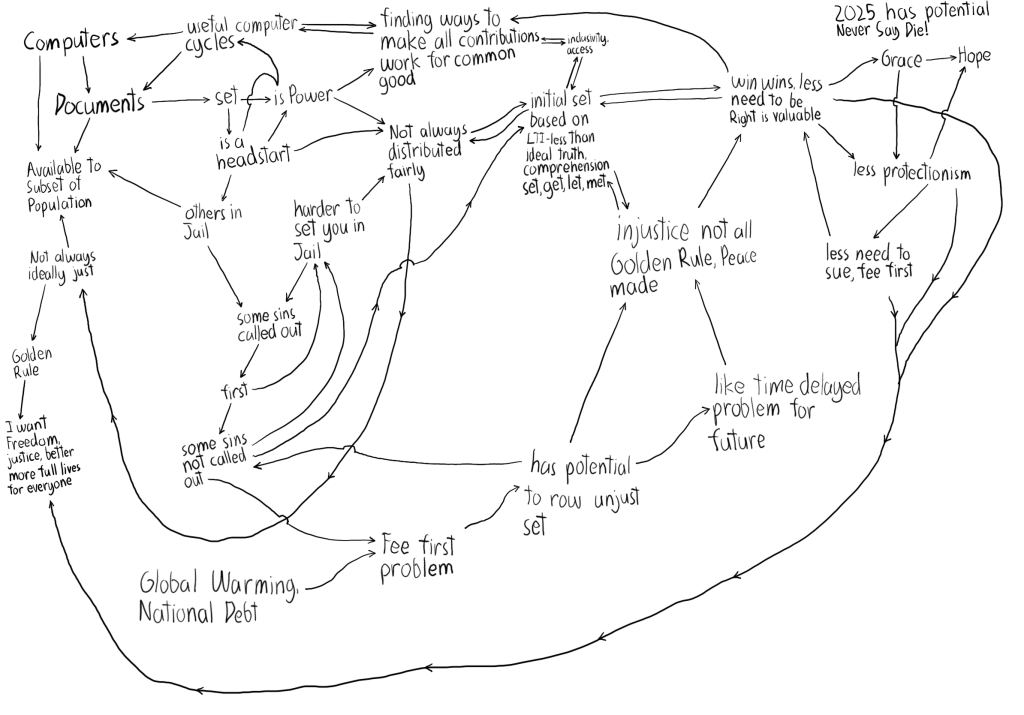 2025 has potential
Never Say Die!
Computers
useful computer
cycles
finding ways to
make all contributions
work for common
good
inclusivity,
access
Grace
Hope
Documents
set
is Power
initial set
based on
LTI-less than
ideal truth,
comprehension
set, get, let, met
win wins, less
need to be
Right is valuable
is a
headstart
Not always
distributed
fairly
Available to
Subset of
Population
less protectionism
others in
Jail
harder to
set you in
Jail
injustice not all
Golden Rule, Peace
made
Not always
ideally just
less need to
sue, fee first
some sins
called out
Golden
Rule
first
like time delayed
problem for
future
I want
Freedom,
justice, better
more full lives
for everyone
some sins
not called
out
has potential
to row unjust
set
Fee first
problem
Global Warming,
National Debt